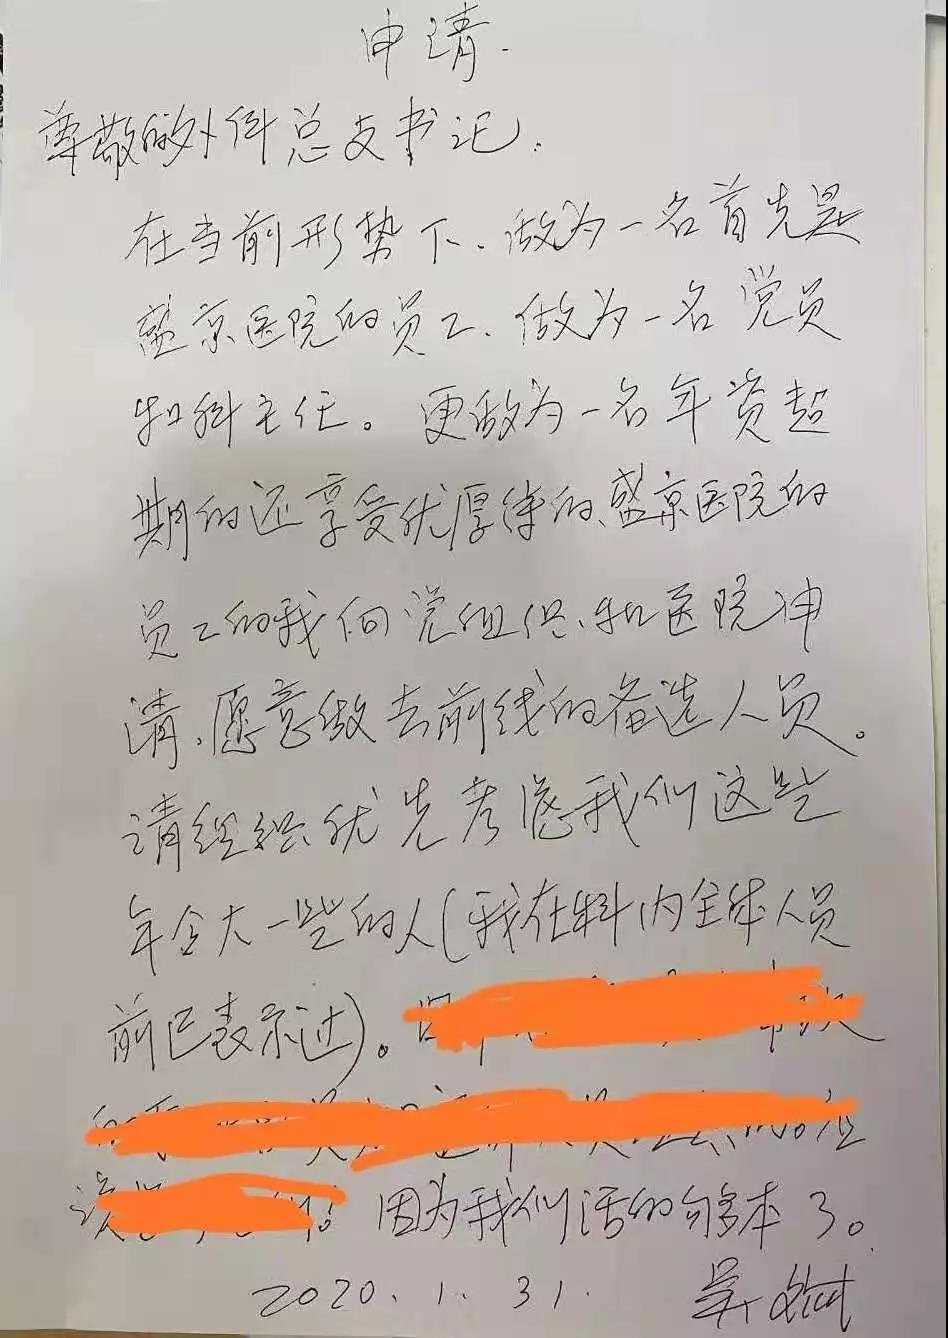 申请.
尊敬的外科总支书记.
在当前形势下.做为一名首先是
盛京医院的员工.做为一名党员
和科主任。更做为一名年资超
期的还享受优厚待的、盛京医院的
员工的我向党组织、和医院申
请、愿意做去前线的备选人员。
请组织优先考虑我们这些
年令大一些的人(我在科内全体人员
前已表示过)。
因为我们活的够本了。
2020.1.31.